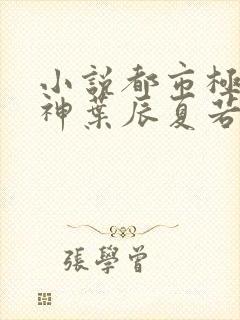 小説都市極
神葉辰夏若
張學曾